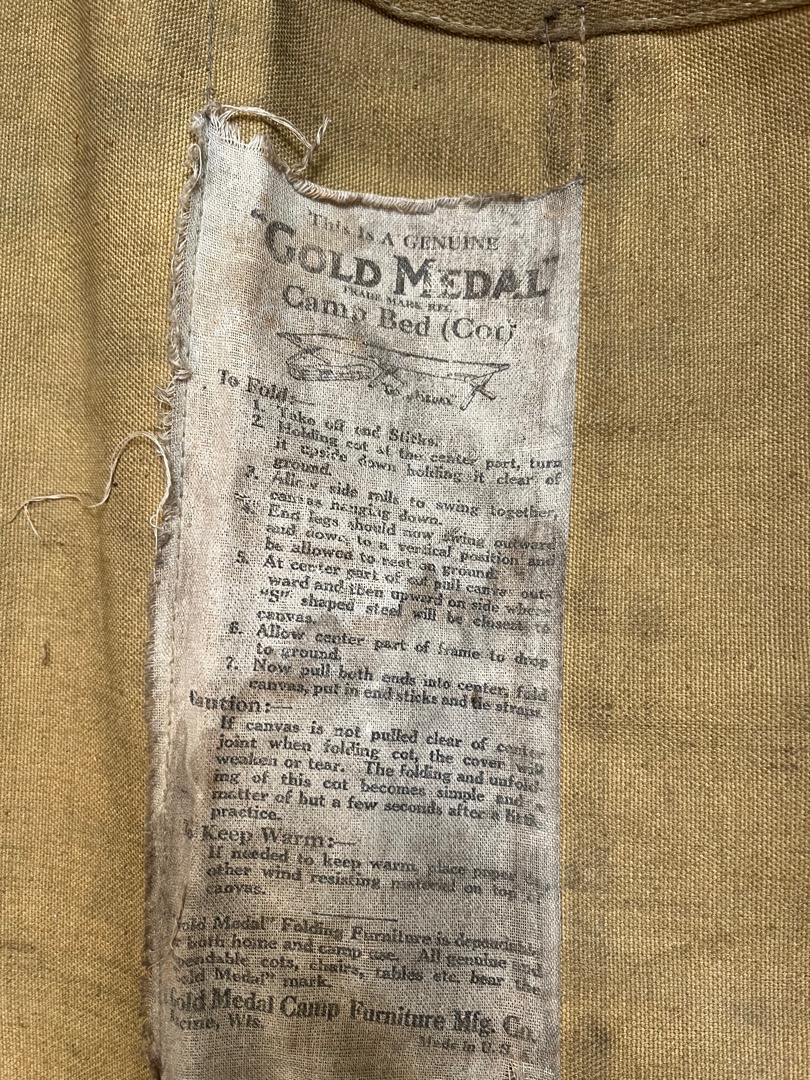 This Is A GENUINE
"GOLD MEDAL"
TRADE MARK REG.
Camp Bed (Cot)
To Fold:—
1. Take off end Sticks.
2. Holding cot at the center part, turn
it upside down holding it clear of
ground.
3. Allow side rails to swing together,
canvas hanging down.
4. End legs should now swing outward
and down to a vertical position and
be allowed to rest on ground.
5. At center part of cot pull canvas out-
ward and then upward on side where
"S" shaped steel will be closest to
canvas.
6. Allow center part of frame to drop
to ground.
7. Now pull both ends into center, fold
canvas, put in end sticks and tie straps.
Caution:—
If canvas is not pulled clear of center
joint when folding cot, the cover will
weaken or tear. The folding and unfold-
ing of this cot becomes simple and a
matter of but a few seconds after a little
practice.
To Keep Warm:—
If needed to keep warm place paper or
other wind resisting material on top of
canvas.
Gold Medal" Folding Furniture is dependable
r both home and camp use. All genuine and
pendable cots, chairs, tables etc. bear the
old Medal" mark.
Gold Medal Camp Furniture Mfg. Co.
acine, Wis.
Made in U. S.